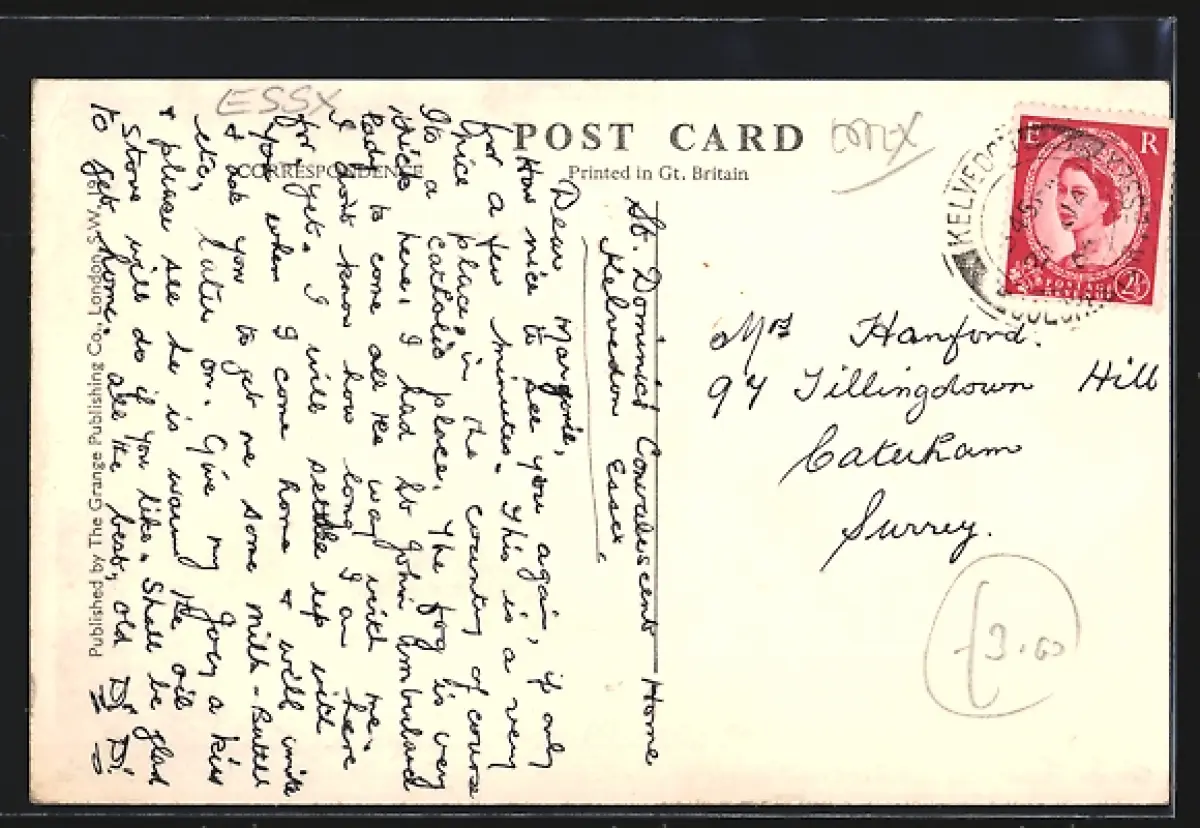 ESSX
POST CARD
CORRESPONDENCE
Printed in Gt. Britain
Published by The Grange Publishing Co., London, S.W.16
St. Dominics Convalescent Home
Kelvedon Essex.
Dear Margorie,
How nice to see you again, if only
for a few minutes. This is a very
nice place, in the country of course
Its a catholic place. The fog is very
thick here. I had St John Ambulance
lady to come all the way with me.
I dont know how long I am here
for yet. I will settle up with
you when I come home & will write
& ask you to get me some milk-Butter
etc, later on. Give my Joey a kiss
& please see he is warm the oil
Stove will do if you like. Shall be glad
to get home. All the best, old D. D.
E R
KELVEDON
COLCHESTER
POSTAGE
REVENUE
2½
Mrs Hanford.
94 Tillingdown Hill
Caterham
Surrey.
£3.00